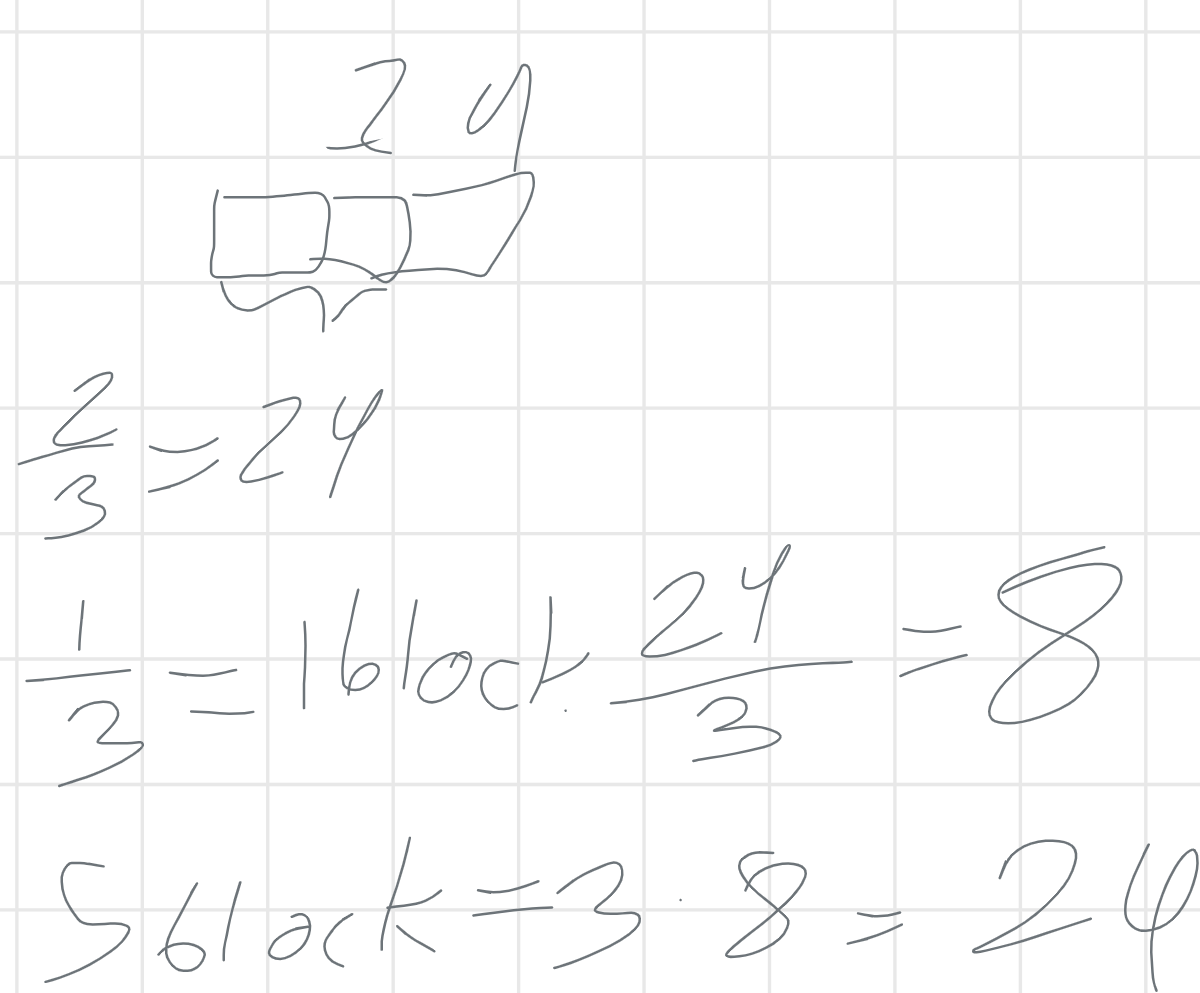 24
2/3 = 24
1/3 = 1 block. 24/3 = 8
5 block = 3 · 8 = 24